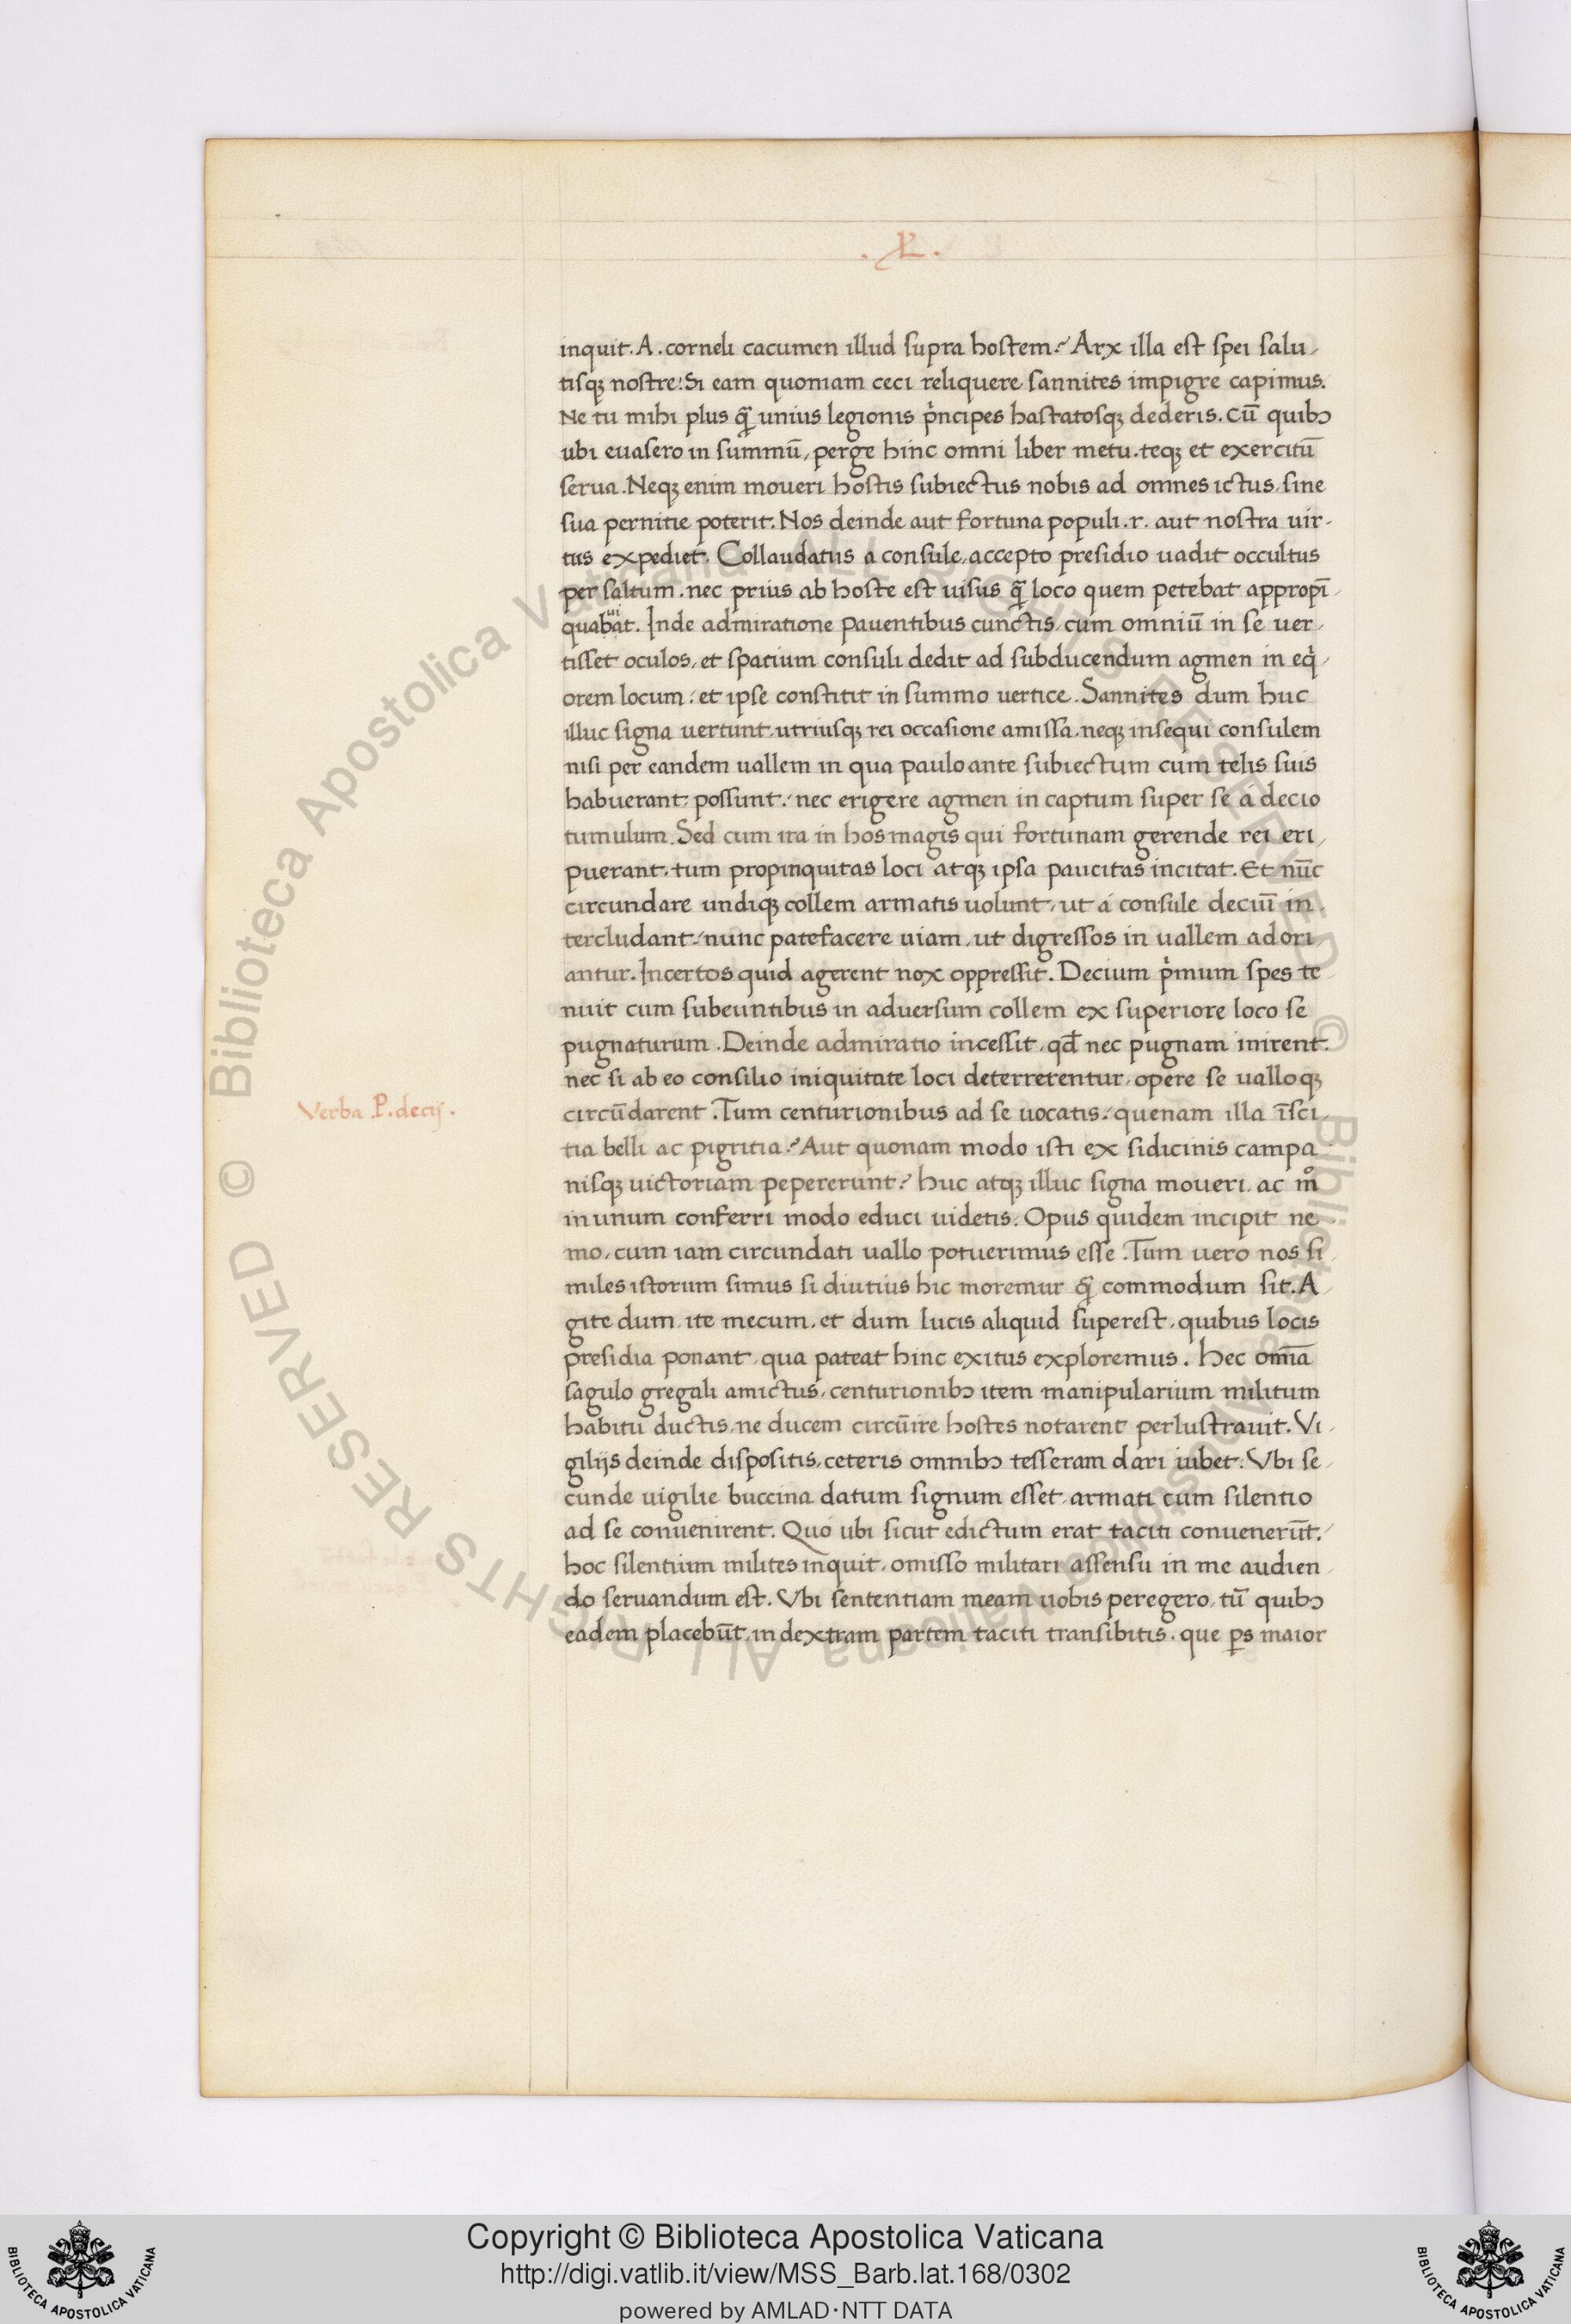 .XL.
inquit. A. corneli cacumen illud supra hostem? Arx illa est spei salu
tisqꝫ nostre: si eam quoniam ceci reliquere sannites impigre capimus.
Ne tu mihi plus qᷓ unius legionis pͥncipes hastatosqꝫ dederis. cū quibꝫ
ubi euasero in summū, perge hinc omni liber metu. teqꝫ et exercitū
serua. Neqꝫ enim moueri hostis subiectus nobis ad omnes ictus, sine
sua pernitie poterit. Nos deinde aut fortuna populi .r. aut nostra uir-
tus expediet. Collaudatus a consule, accepto presidio uadit occultus
per saltum. nec prius ab hoste est uisus qᷓ loco quem petebat appropī
quabat. Inde admiratione pauentibus cunctis, cum omniū in se uer
ui
tisset oculos, et spatium consuli dedit ad subducendum agmen in eqͥ
orem locum: et ipse constitit in summo uertice. Sannites dum huc
illuc signa uertunt, utriusqꝫ rei occasione amissa, neqꝫ insequi consulem
nisi per eandem uallem in qua paulo ante subiectum cum telis suis
habuerant possunt: nec erigere agmen in captum super se a decio
tumulum. Sed cum ira in hos magis qui fortunam gerende rei eri
puerant, tum propinquitas loci atqꝫ ipsa paucitas incitat. Et nūc
circundare undiqꝫ collem armatis uolunt, ut a consule deciū in
tercludant: nunc patefacere uiam, ut digressos in uallem adori
antur. Incertos quid agerent nox oppressit. Decium pͥmum spes te
nuit cum subeuntibus in aduersum collem ex superiore loco se
pugnaturum. Deinde admiratio incessit, qđ nec pugnam inirent.
nec si ab eo consilio iniquitate loci deterrerentur, opere se ualloqꝫ
circūdarent. Tum centurionibus ad se uocatis: quenam illa īsci
Verba P. decij.
tia belli ac pigritia? Aut quonam modo isti ex sidicinis campa
nisqꝫ uictoriam pepererunt? huc atqꝫ illuc signa moueri, ac mͦ
in unum conferri modo educi uidetis. Opus quidem incipit ne
mo, cum iam circundati uallo potuerimus esse. Tum uero nos si
miles istorum simus si diutius hic moremur qᷓ commodum sit. A
gite dum, ite mecum, et dum lucis aliquid superest, quibus locis
presidia ponant, qua pateat hinc exitus exploremus. Hec omīa
sagulo gregali amictus, centurionibꝫ item manipularium militum
habitu ductis, ne ducem circūire hostes notarent perlustrauit. Vi
gilijs deinde dispositis, ceteris omnibꝫ tesseram dari iubet. Vbi se
cunde uigilie buccina datum signum esset, armati cum silentio
ad se conuenirent. Quo ubi sicut edictum erat taciti conuenerūt:
hoc silentium milites inquit, omisso militari assensu in me audien
do seruandum est. Vbi sententiam meam uobis peregero, tū quibꝫ
eadem placebūt, in dextram partem taciti transibitis. que ꝑs maior
© Biblioteca Apostolica Vaticana ALL RIGHTS RESERVED © Biblioteca Apostolica Vaticana ALL RIGHTS RESERVED
Copyright © Biblioteca Apostolica Vaticana
http://digi.vatlib.it/view/MSS_Barb.lat.168/0302
powered by AMLAD·NTT DATA
BIBLIOTECA APOSTOLICA VATICANA
BIBLIOTECA APOSTOLICA VATICANA